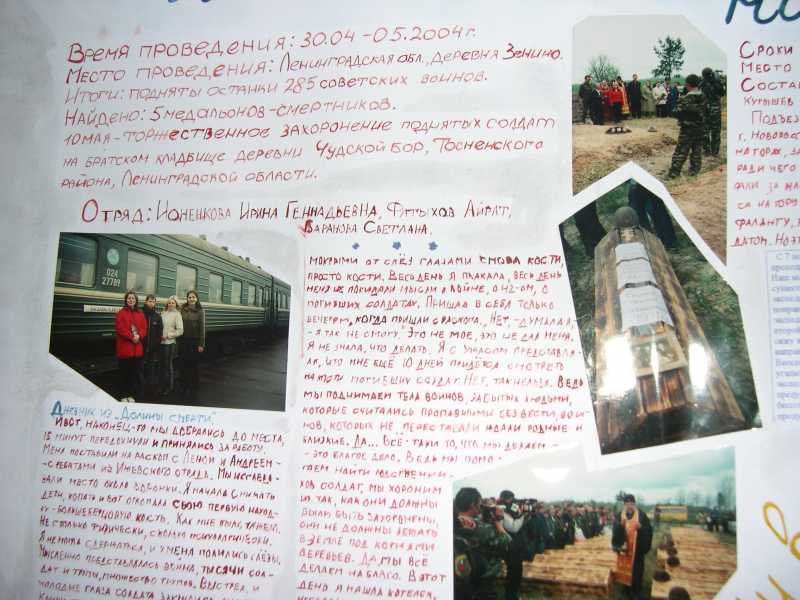 Время проведения: 30.04 - 05.2004г.
Место проведения: Ленинградская обл., деревня Зенино.
Итоги: подняты останки 285 советских воинов.
Найдено: 5 медальонов-смертников.
10 мая - торжественное захоронение поднятых солдат
на братском кладбище деревни Чудской Бор, Тосненского
района, Ленинградской области.
Отряд: Ионенкова Ирина Геннадьевна, Фатыхов Айрат,
Баранова Светлана.
024
27709
Дневник из "Долины смерти"
И вот, наконец-то мы добрались до места,
15 минут передохнули и принялись за работу.
Меня поставили на раскоп с Леной и Андреем -
- ребятами из Ижевского отряда. Мы исследо-
вали место около воронки. Я начала снимать
дёрн, копать и вот откопала свою первую наход-
ку - большеберцовую кость. Как мне было тяжело,
не столько физически, сколько психологически.
Я не могла сдержаться, и у меня полились слёзы.
Мысленно представлялась война, тысячи сол-
дат и трупы, множество трупов. Выстрел, и
молодые глаза солдата закрылись
мокрыми от слёз глазами снова кости,
просто кости. Весь день я плакала, весь день
меня не покидали мысли о войне, о нем, о
погибших солдатах. Пришла в себя только
вечером, когда пришли с раскопа. "Нет, - думала я,
- я так не смогу". Это не мое, это не для меня.
Я не знала, что делать. Я с ужасом представля-
ла, что мне ещё 10 дней придётся смотреть
на кости погибших солдат. Нет, так нельзя. Ведь
мы поднимаем тела воинов, забытых людьми,
которые считались пропавшими без вести, вои-
нов, которых не переставали ждать родные и
близкие. Да... Всё-таки то, что мы делаем -
- это благое дело. Ведь мы помо-
гаем найти родственни-
ков солдат, мы хороним
их так, как они должны
были быть захоронены,
они не должны лежать
в земле под корнями
деревьев. Да, мы всё
делаем на благо. В этот
день я нашла котелок,
Сроки
Место
Соста
Кутышев
Подъез
г. Новорос
ради чего
фалангу,
датом.